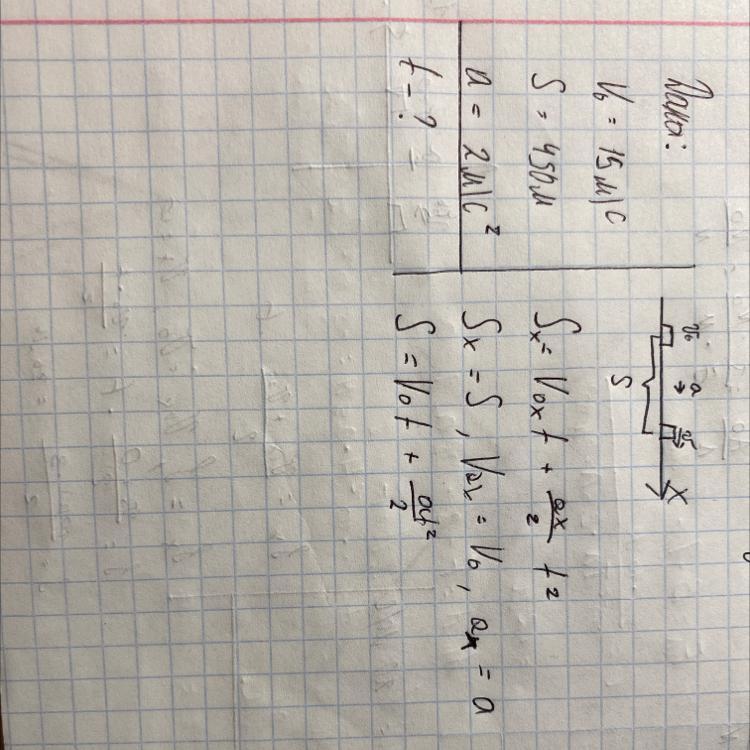 Дано:
V₀ = 15 м/с
S = 450 м
a = 2 м/с²
t - ?
v₀ a v X
S
Sx = V₀x t + ax/2 t²
Sx = S, V₀x = V₀, ax = a
S = V₀t + at²/2